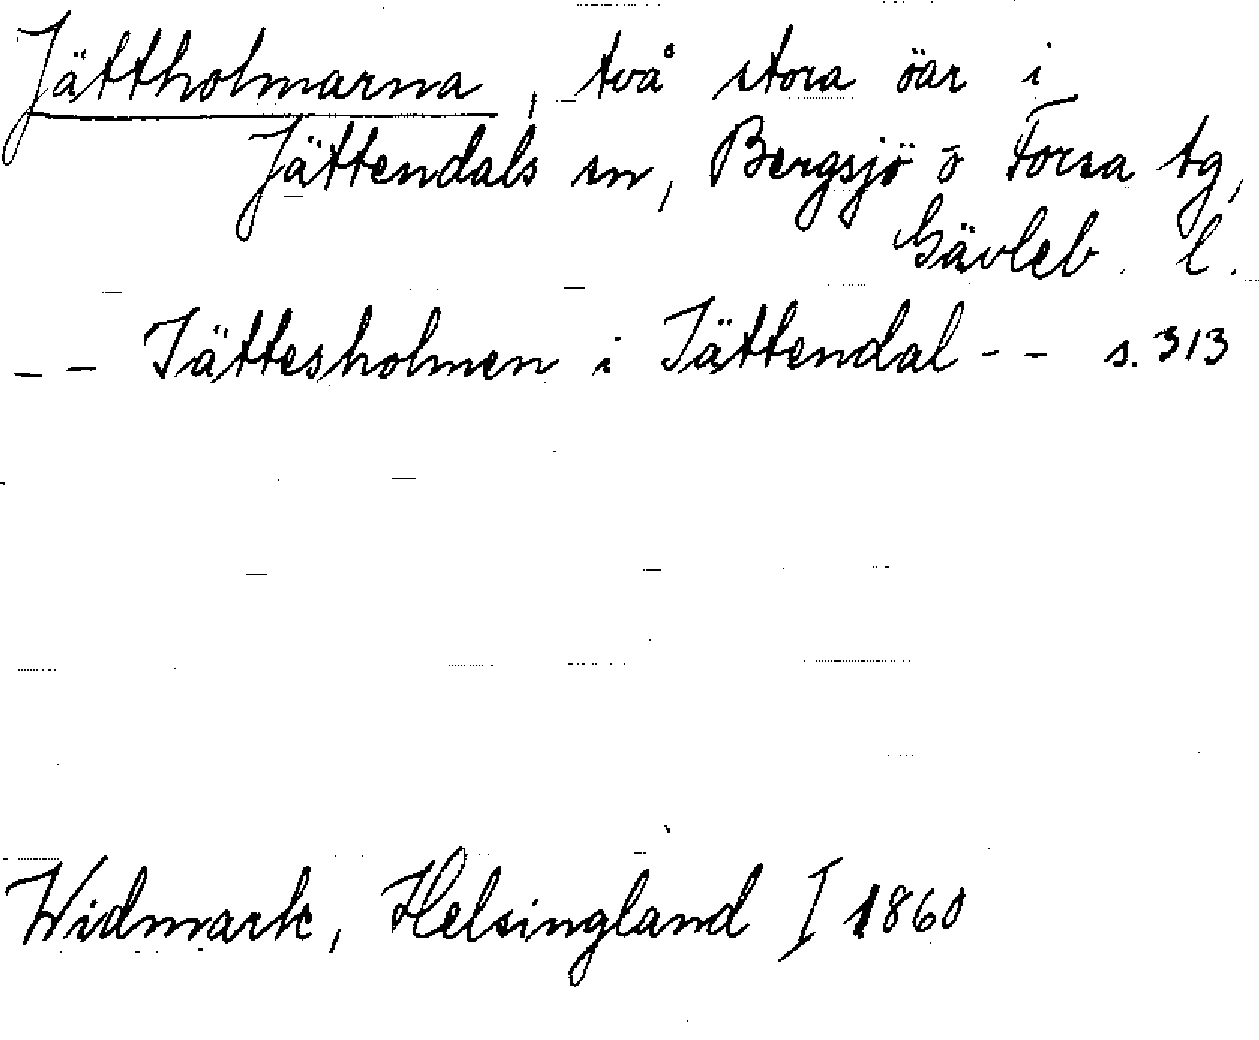 Jättholmarna, två stora öar i
Jättendals sn, Bergsjö o Forsa tg,
Gävleb. l.
– – Jättesholmen i Jättendal – – s. 313
Widmark, Helsingland I 1860